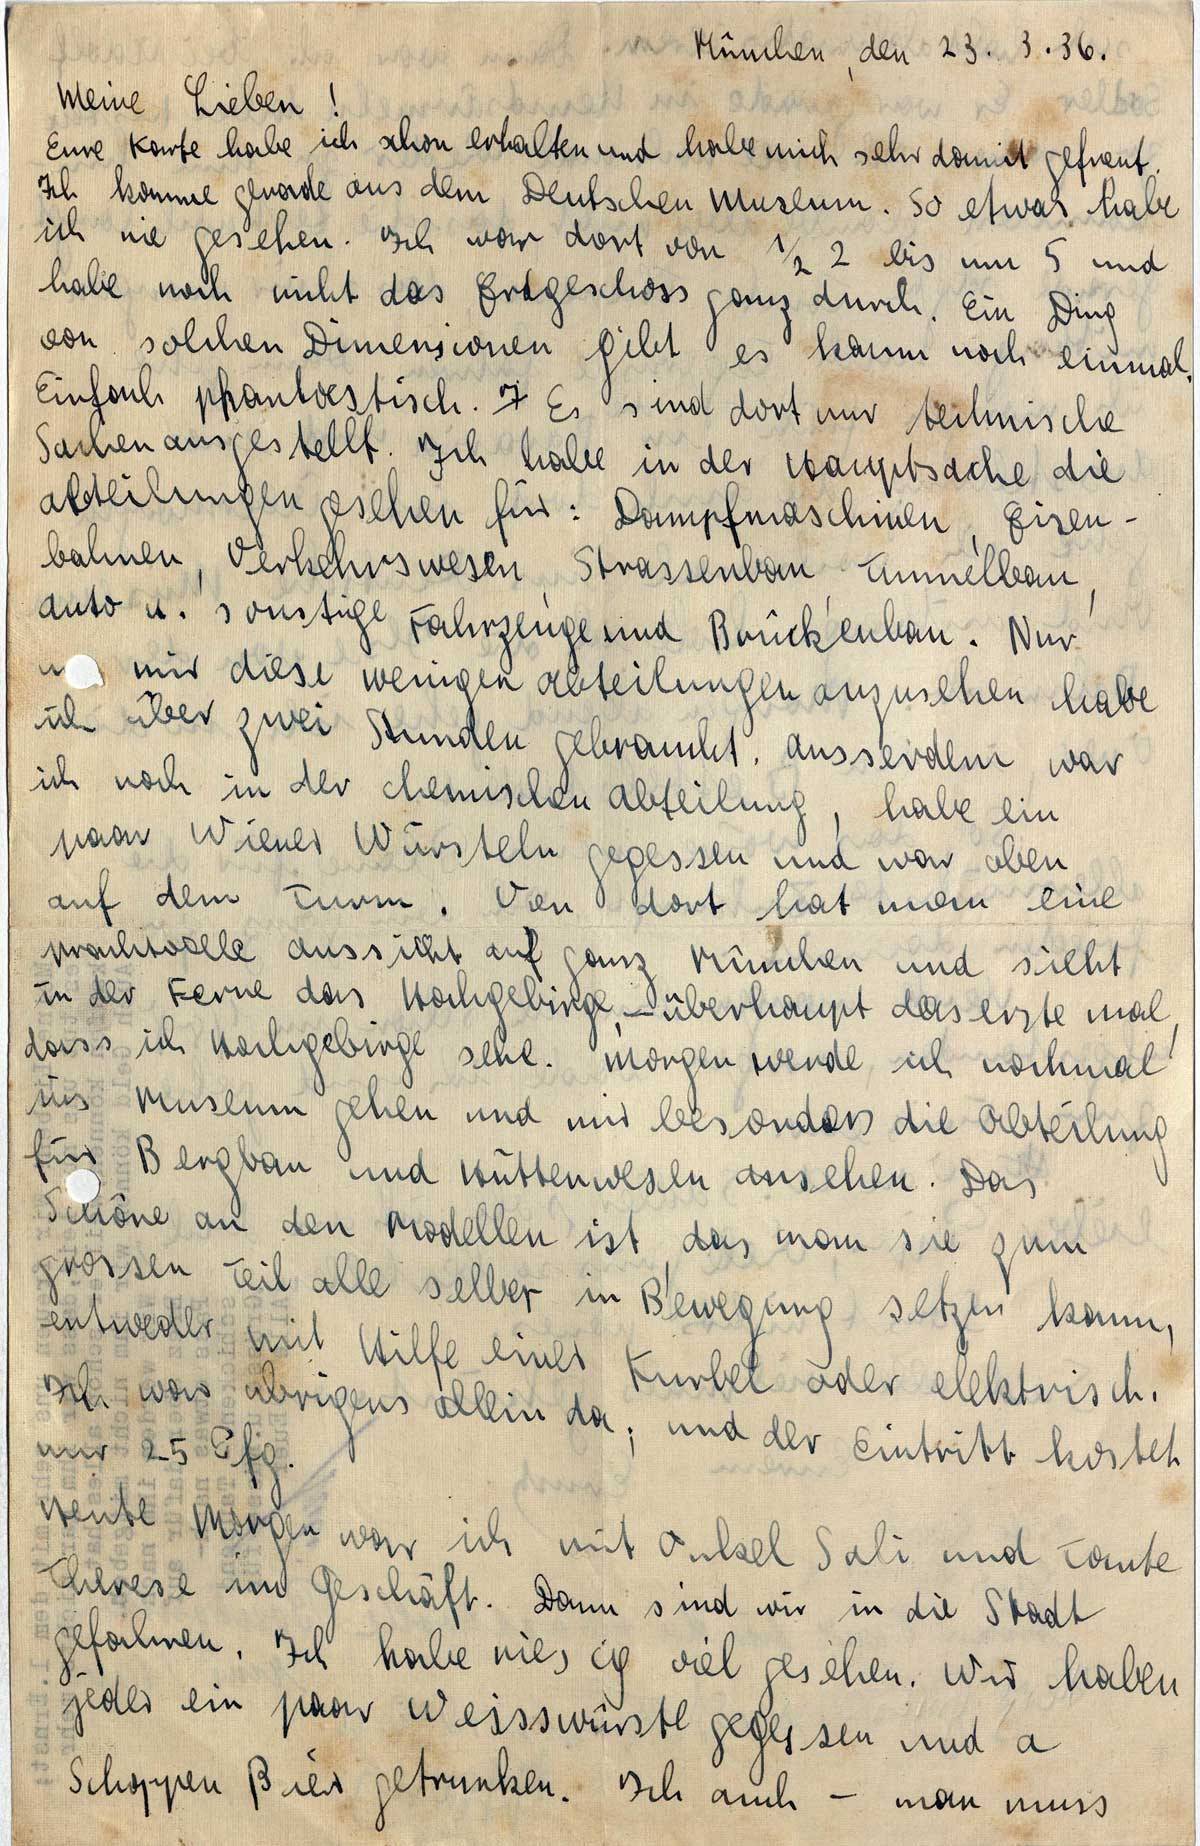 München, den 23. 3. 36.
Meine Lieben!
Eure Karte habe ich schon erhalten und habe mich sehr damit gefreut.
Ich komme gerade aus dem Deutschen Museum. So etwas habe
ich nie gesehen. Ich war dort von 1/2 2 bis um 5 und
habe noch nicht das Erdgeschoss ganz durch. Ein Ding
von solchen Dimensionen gibt es kaum noch einmal.
Einfach phantastisch. Es sind dort nur technische
Sachen ausgestellt. Ich habe in der Hauptsache die
Abteilungen gesehen für: Dampfmaschinen, Eisen-
bahnen, Verkehrswesen, Strassenbau, Tunnelbau,
Auto u. sonstige Fahrzeuge und Brückenbau. Nur
mir diese wenigen Abteilungen anzusehen habe
ich über zwei Stunden gebraucht. Ausserdem war
ich noch in der chemischen Abteilung, habe ein
paar Wiener Würsteln gegessen und war oben
auf dem Turm. Von dort hat man eine
prachtvolle Aussicht auf ganz München und sieht
in der Ferne das Hochgebirge, – überhaupt das erste mal,
dass ich Hochgebirge sehe. Morgen werde ich nochmal
ins Museum gehen und mir besonders die Abteilung
für Bergbau und Hüttenwesen ansehen. Das
Schöne an den Modellen ist, das man sie zum
grossen Teil alle selber in Bewegung setzen kann,
entweder mit Hilfe einer Kurbel oder elektrisch.
Ich war übrigens allein da, und der Eintritt kostet
nur 25 Pfg.
Heute Morgen war ich mit Onkel Sali und Tante
Therese im Geschäft. Dann sind wir in die Stadt
gefahren. Ich habe riesig viel gesehen. Wir haben
jeder ein paar Weisswürstl gegessen und a
Schoppen Bier getrunken. Ich auch – man muss